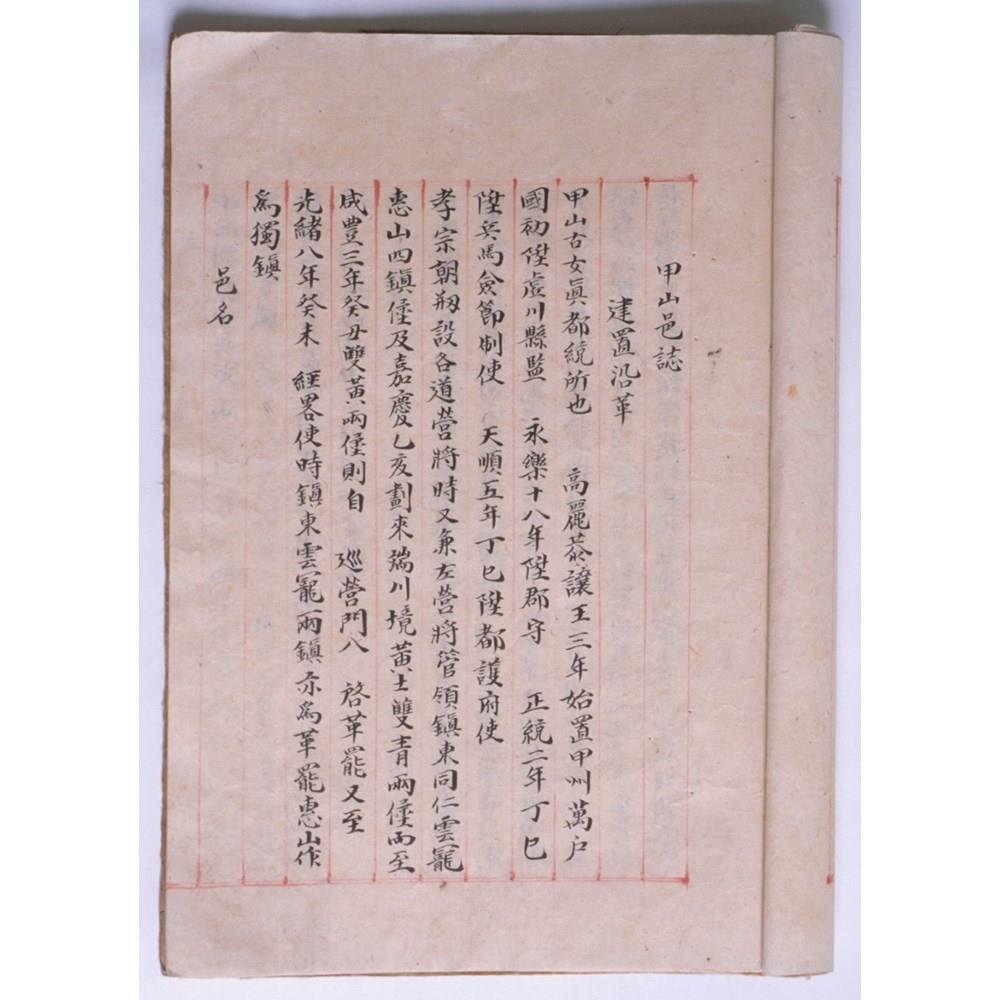 甲山邑誌
建置沿革
甲山古女眞都統所也 高麗恭讓王三年始置甲州萬戶
國初陞虛川縣監 永樂十八年陞郡守 正統二年丁巳
陞兵馬僉節制使 天順五年丁巳陞都護府使
孝宗朝刱設各道營將時又兼左營將管領鎭東同仁雲寵
惠山四鎭堡及嘉慶乙亥劃來端川境黃土雙靑兩堡而至
咸豊三年癸丑雙黃兩堡則自 巡營門八 啓革罷又至
光緖八年癸未 經畧使時鎭東雲寵兩鎭亦爲革罷惠山作
爲獨鎭
邑名